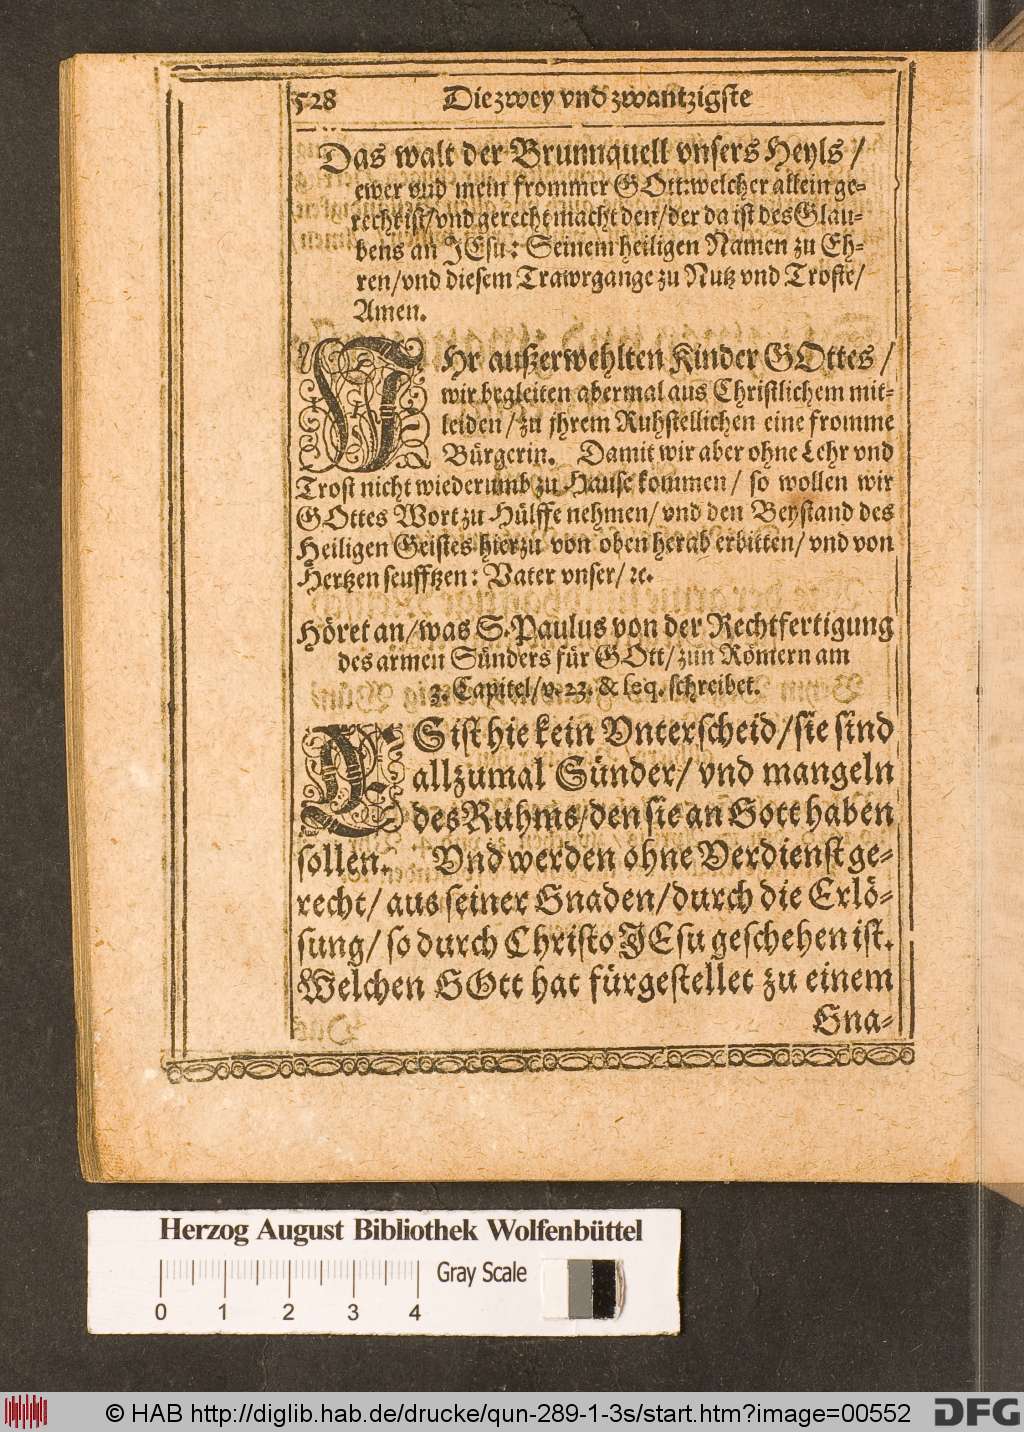 528 Die zwey vnd zwantzigste
Das walt der Brunnquell vnsers Heyls /
ewer vnd mein frommer GOtt: welcher allein ge-
recht ist / vnd gerecht macht den / der da ist des Glau-
bens an JEsu: Seinem heiligen Namen zu Eh-
ren / vnd diesem Trawrgange zu Nutz vnd Troste /
Amen.
IHr außerwehlten Kinder GOttes /
wir begleiten abermal aus Christlichem mit-
leiden / zu jhrem Ruhstellichen eine fromme
Bürgerin. Damit wir aber ohne Lehr vnd
Trost nicht wiederumb zu Hause kommen / so wollen wir
GOttes Wort zu Hülffe nehmen / vnd den Beystand des
Heiligen Geistes hierzu von oben herab erbitten / vnd von
Hertzen seufftzen: Vater vnser / ꝛc.
Höret an / was S. Paulus von der Rechtfertigung
des armen Sünders für GOtt / zun Römern am
3. Capitel / v. 23. & seq. schreibet.
ES ist hie kein Vnterscheid / sie sind
allzumal Sünder / vnd mangeln
des Ruhms / den sie an Gott haben
sollen. Vnd werden ohne Verdienst ge-
recht / aus seiner Gnaden / durch die Erlö-
sung / so durch Christo JEsu geschehen ist.
Welchen GOtt hat fürgestellet zu einem
Gna-
Herzog August Bibliothek Wolfenbüttel
Gray Scale
0 1 2 3 4
© HAB http://diglib.hab.de/drucke/qun-289-1-3s/start.htm?image=00552 DFG